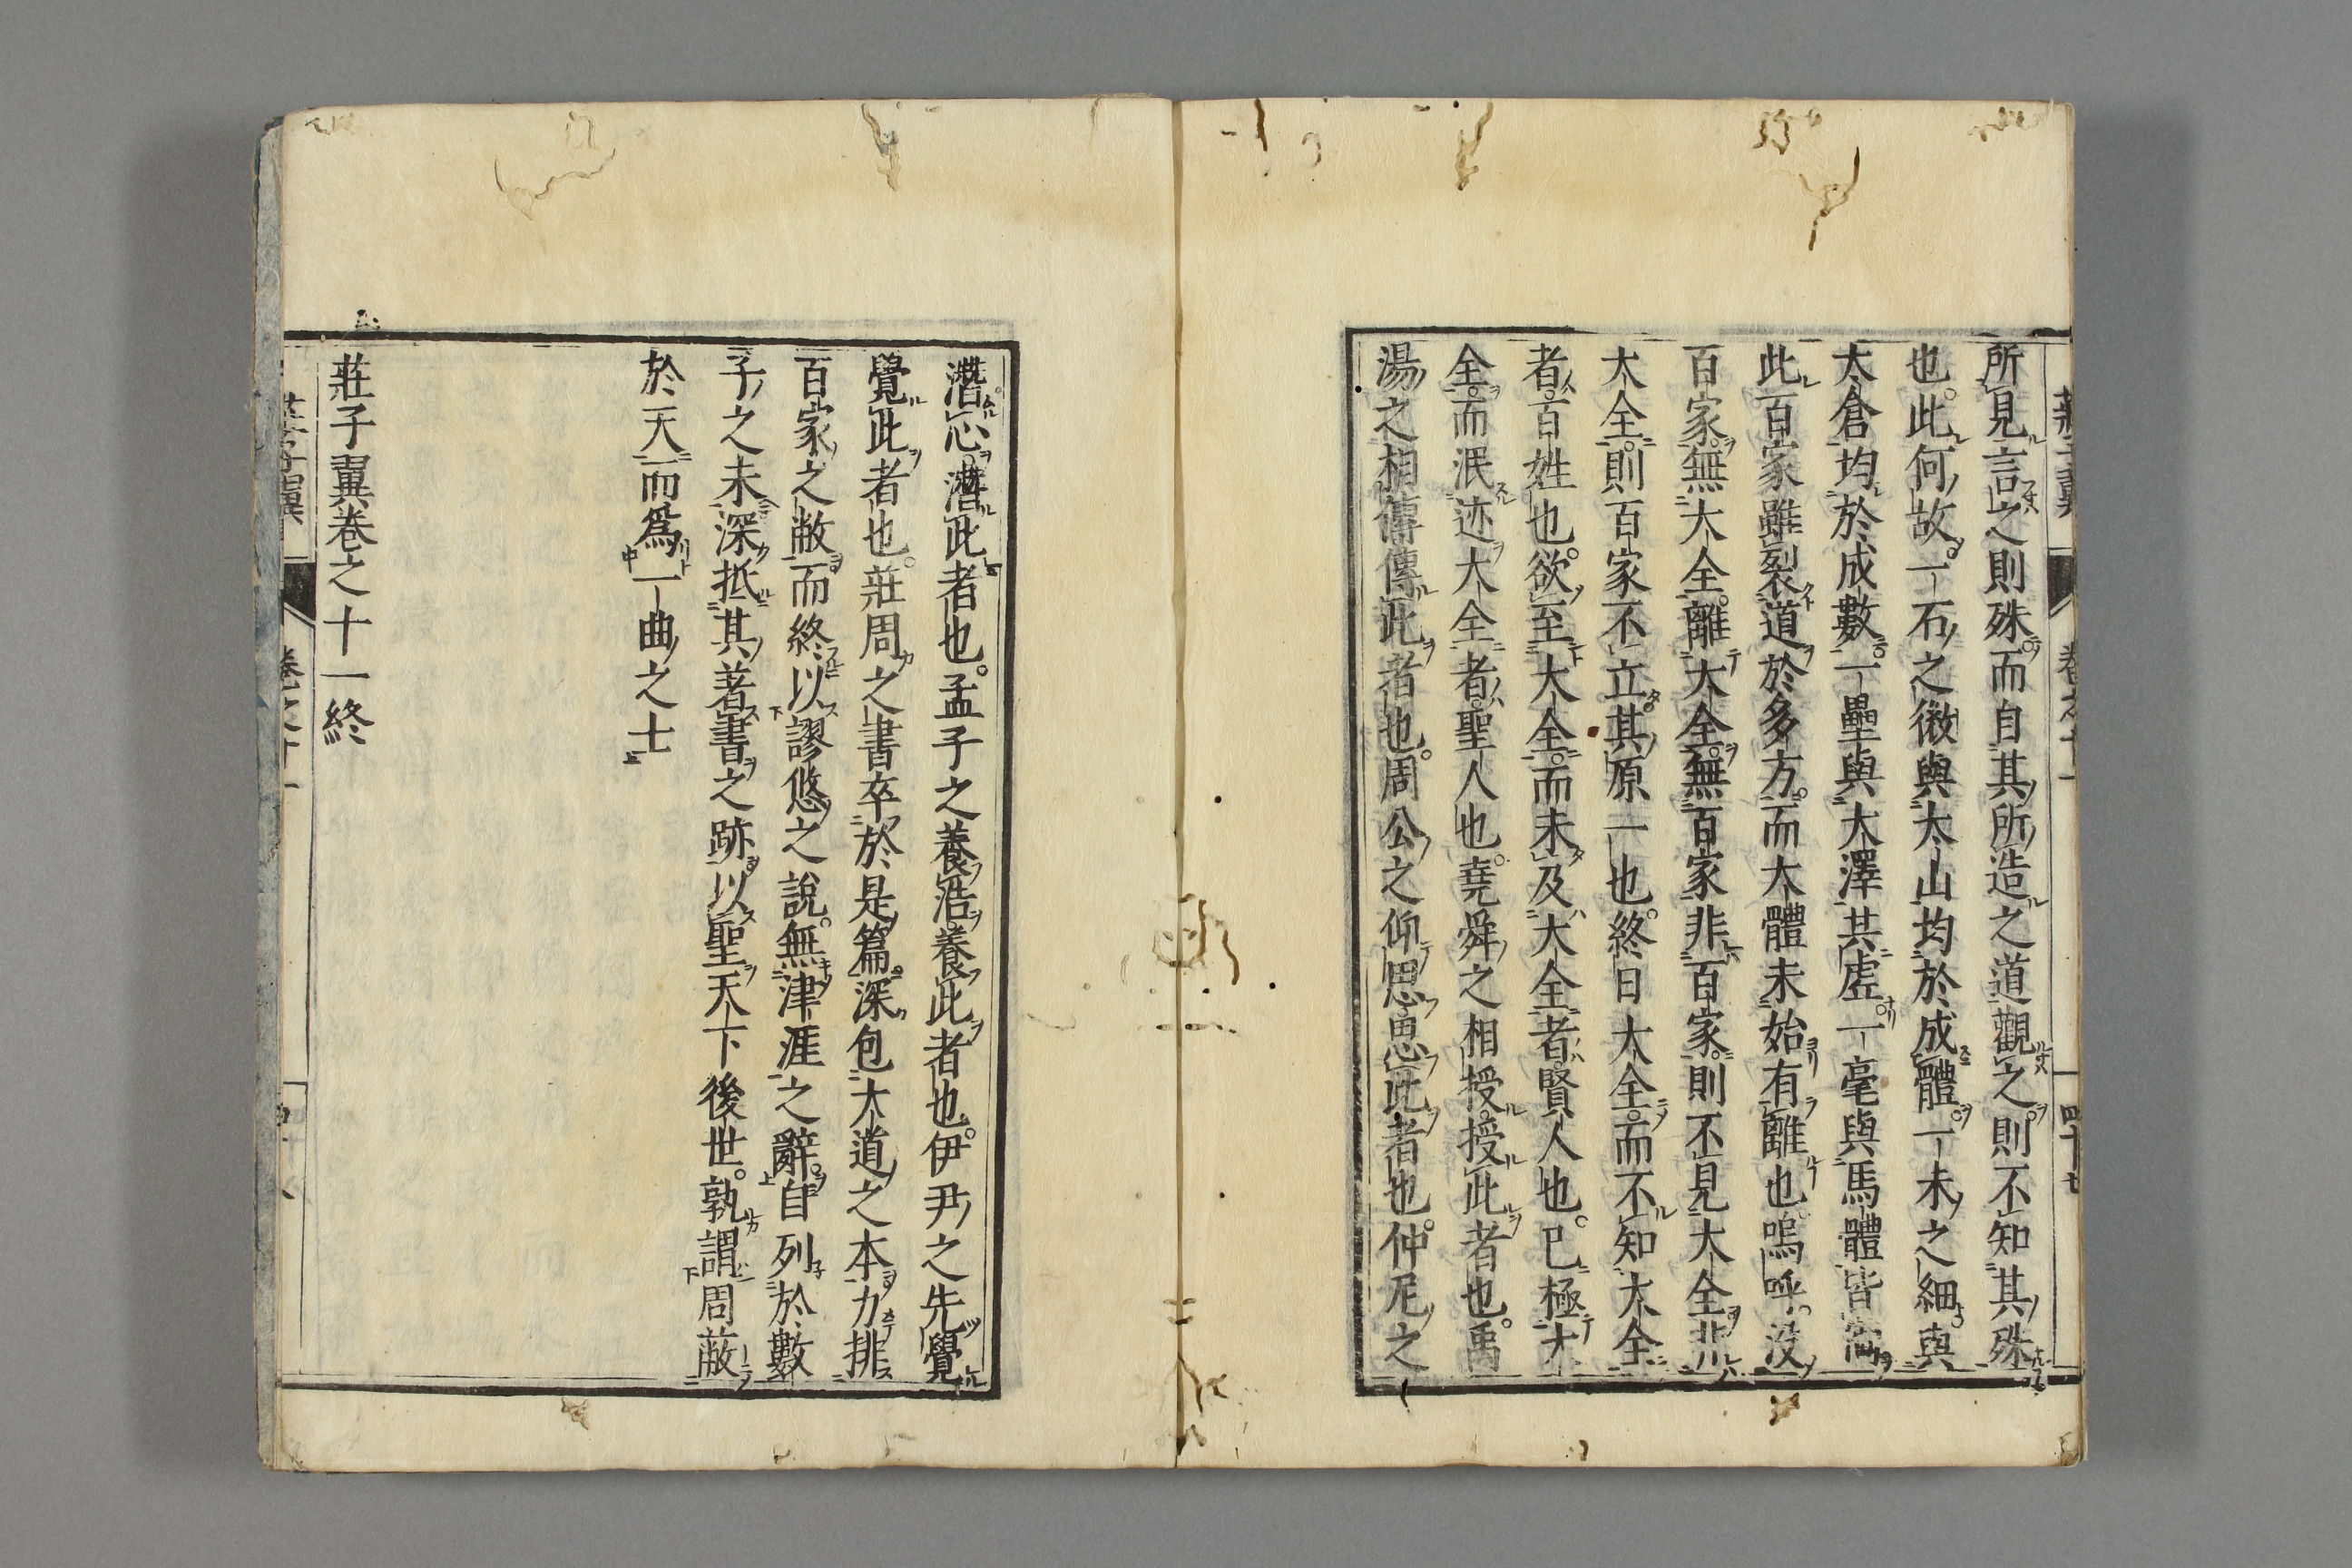 所見言之則殊而自其所造之道觀之則不知其殊
也此何故一石之微與太山均於成體一未之細與
太倉均於成數一壘與大澤共虛一毫與馬體皆備
此百家雖裂道於多方而大體未始有離也嗚呼沒
百家無大全離大全無百家非百家則不見大全非
大全則百家不立其原一也終日大全而不知大全
者百姓也欲至大全而未及大全者賢人也已極大
全而泯迹大全者聖人也堯舜之相授授此者也禹
湯之相傳傳此者也周公之仰思思此者也仲尼之
潛心潛此者也孟子之養浩養此者也伊尹之先覺
覺此者也莊周之書卒於是篇深包大道之本力排
百家之敝而終以謬悠之說無津涯之辭自列於數
子之未深抵其著書之跡以聖天下後世孰謂周蔽
於天而爲一曲之士
莊子翼卷之十一終
莊子翼
卷之十一
四十七